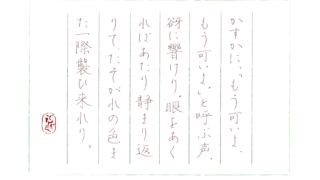 かすかに、「もう可いよ、
もう可いよ。」と呼ぶ声、
谺に響けり。眼をあく
ればあたり静まり返
りて、たそがれの色ま
た一際襲ひ来れり。